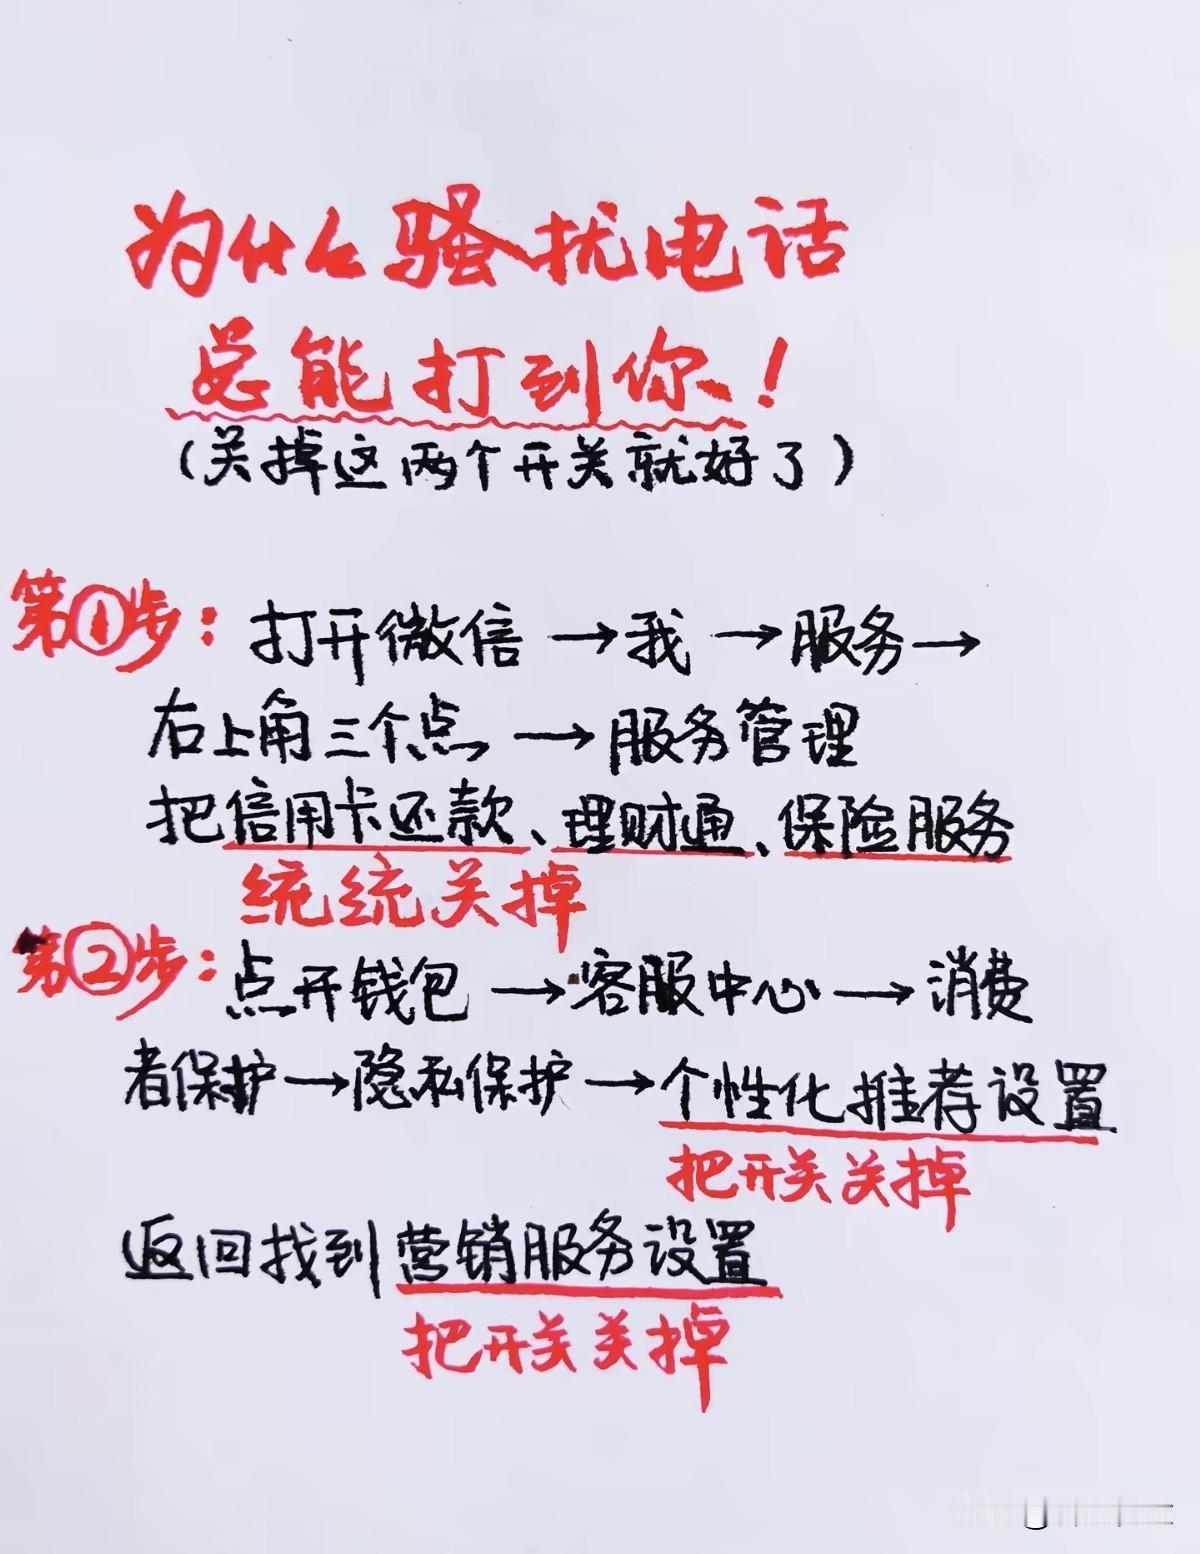 为什么骚扰电话
总能打到你！
（关掉这两个开关就好了）
第①步：打开微信→我→服务→
右上角三个点→服务管理
把信用卡还款、理财通、保险服务
统统关掉
第②步：点开钱包→客服中心→消费
者保护→隐私保护→个性化推荐设置
把开关关掉
返回找到营销服务设置
把开关关掉